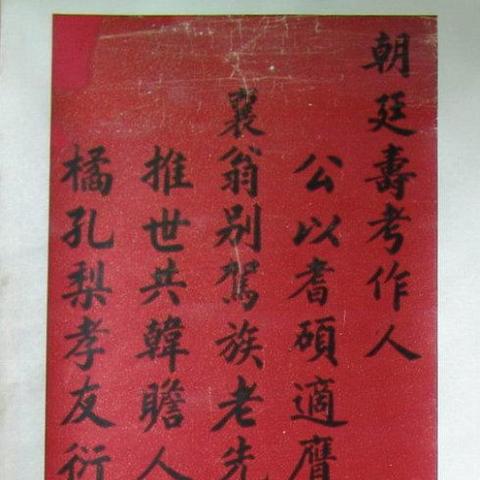 朝廷壽考作人
公以耆碩適膺
襄翁別駕族老先
推世共韓瞻人
橘孔梨孝友衍